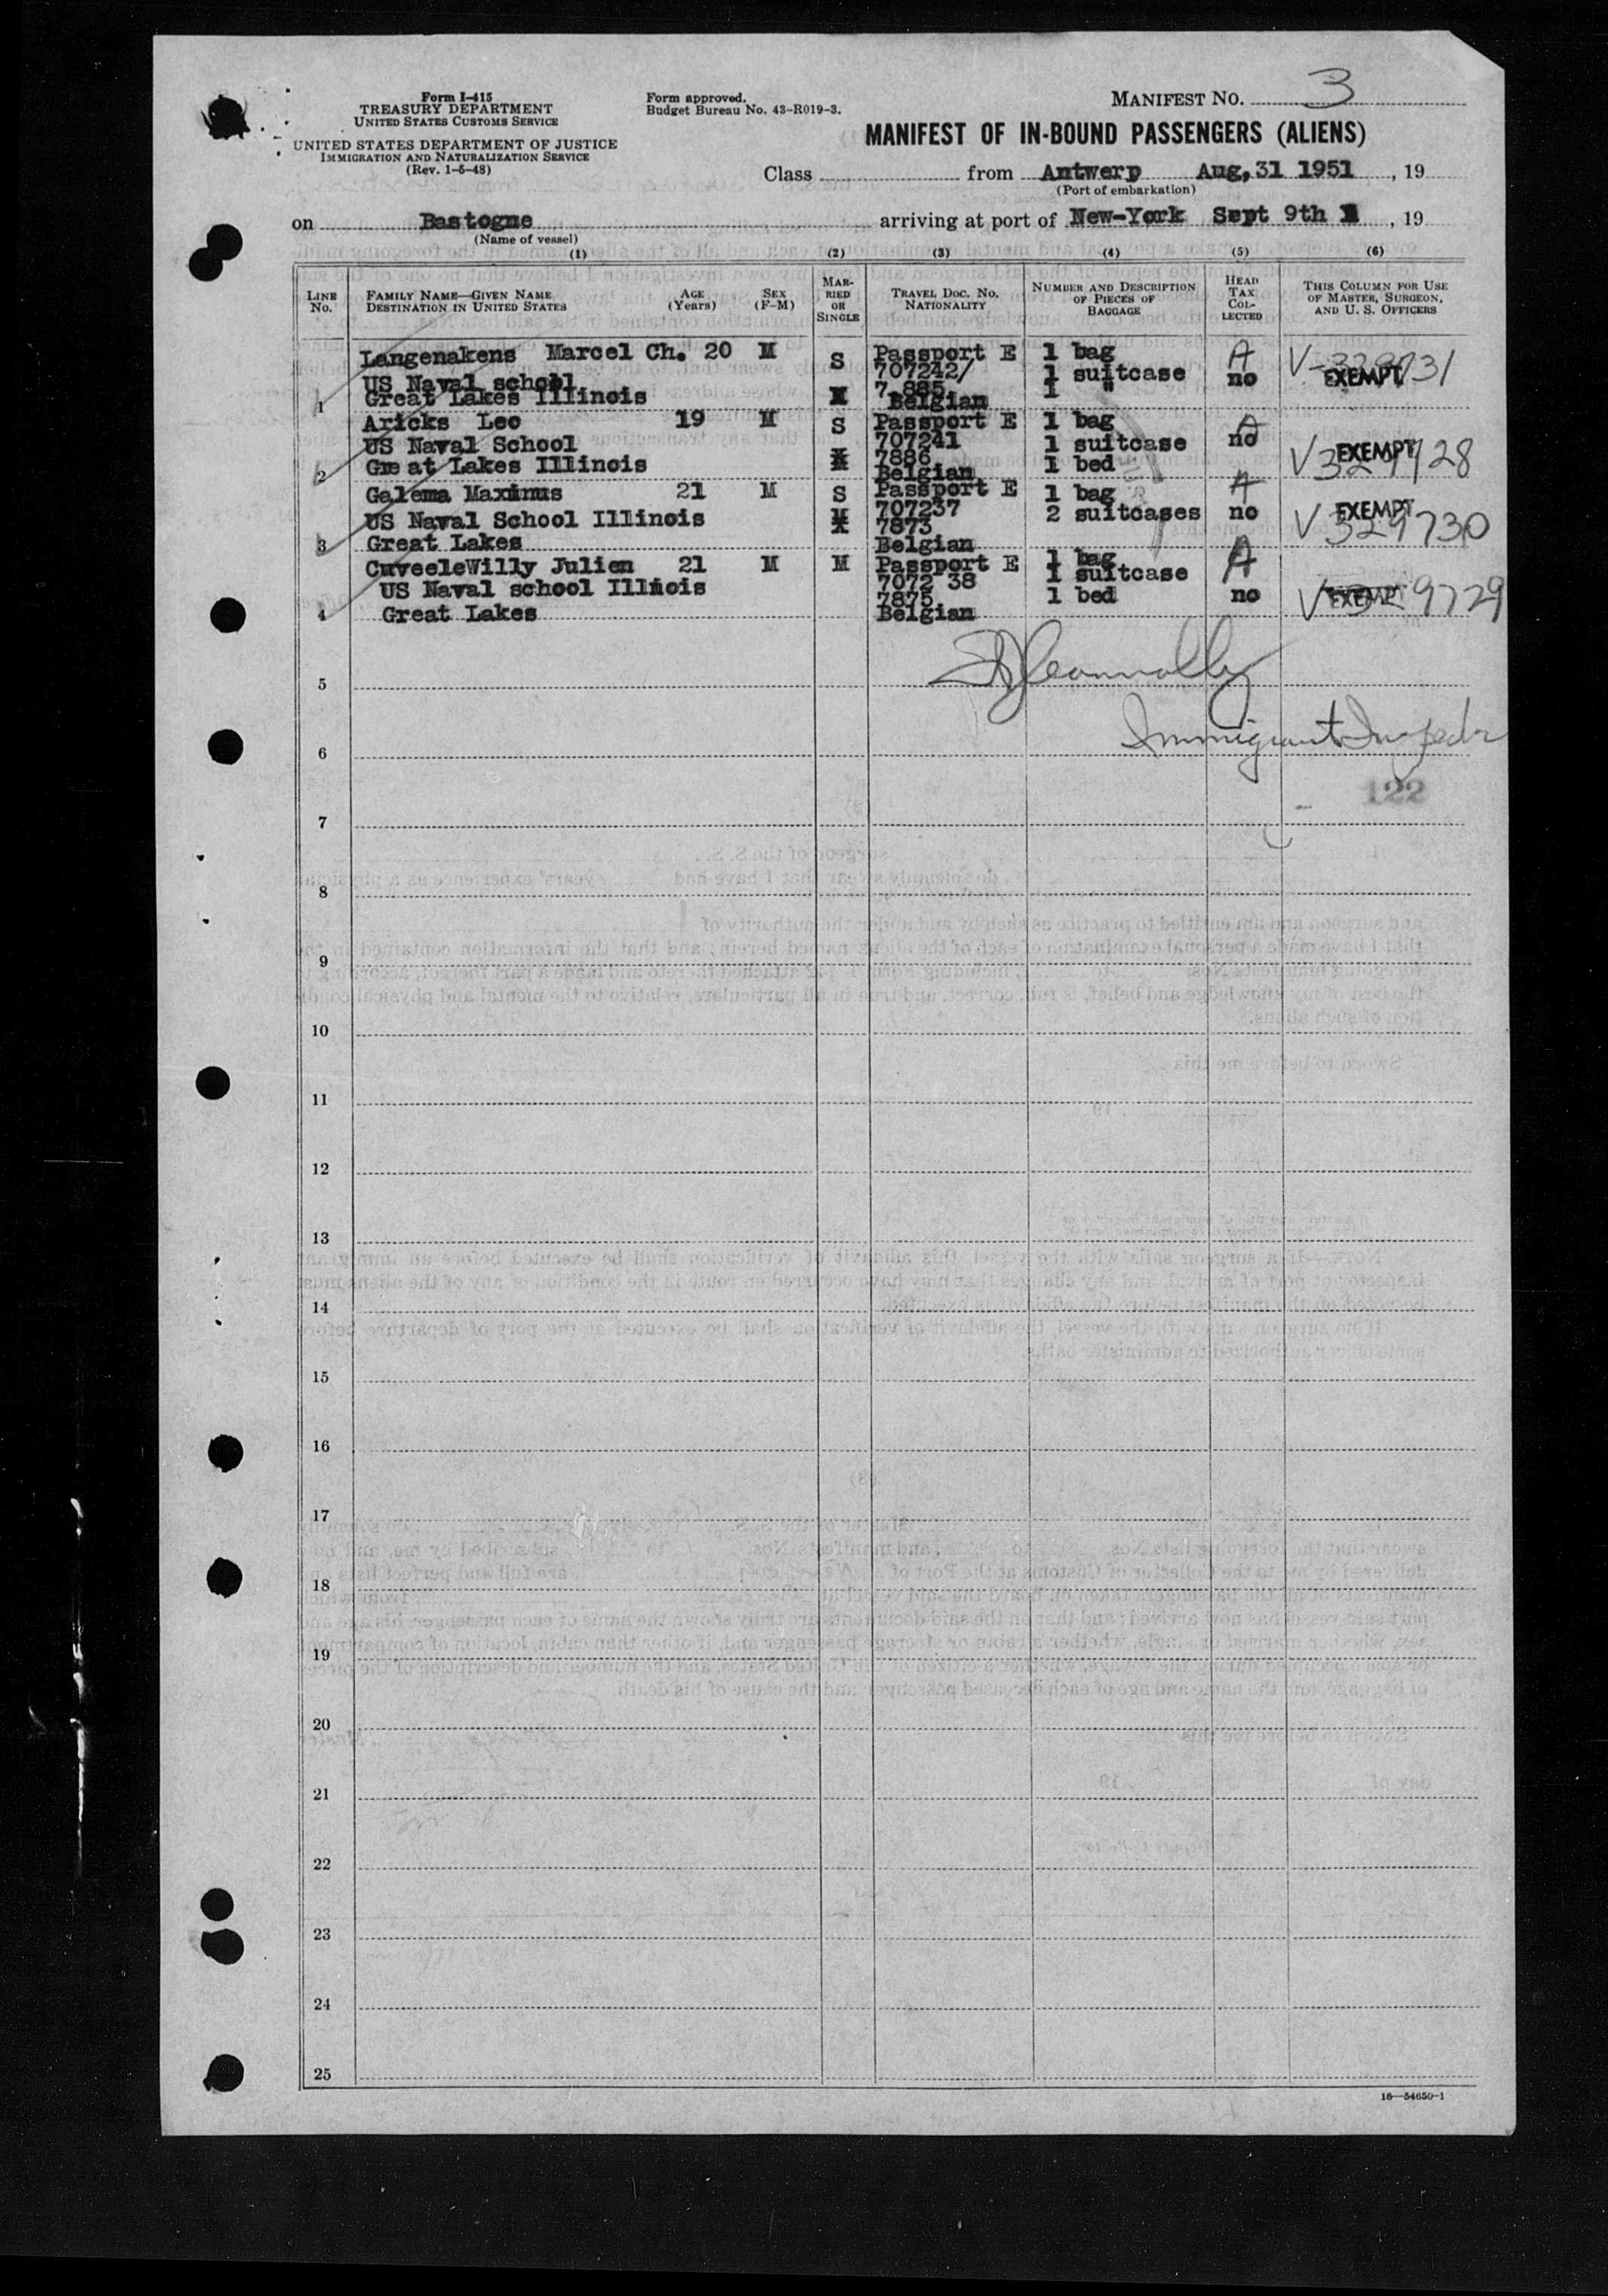 Form I-415
TREASURY DEPARTMENT
UNITED STATES CUSTOMS SERVICE
UNITED STATES DEPARTMENT OF JUSTICE
IMMIGRATION AND NATURALIZATION SERVICE
(Rev. 1-5-48)
Form approved.
Budget Bureau No. 43-R019-3.
MANIFEST NO. 3
MANIFEST OF IN-BOUND PASSENGERS (ALIENS)
Class from Antwerp Aug, 31 1951 , 19
(Port of embarkation)
on Bastogne arriving at port of New-York Sept 9th , 19
(Name of vessel)
(1) (2) (3) (4) (5) (6)
LINE NO. FAMILY NAME—GIVEN NAME DESTINATION IN UNITED STATES AGE (Years) SEX (F-M) MARRIED OR SINGLE TRAVEL DOC. NO. NATIONALITY NUMBER AND DESCRIPTION OF PIECES OF BAGGAGE HEAD TAX COLLECTED THIS COLUMN FOR USE OF MASTER, SURGEON, AND U. S. OFFICERS
Langenakens Marcel Ch. 20 M S Passport E 1 bag A V-329731
US Naval school 707242/ 1 suitcase no EXEMPT
1 Great Lakes Illinois 7.885 1 "
Belgian
Aricks Leo 19 M S Passport E 1 bag A
US Naval School 707241 1 suitcase no EXEMPT
2 Great Lakes Illinois 7886 1 bed V329728
Belgian
Galema Maximus 21 M S Passport E 1 bag A
US Naval School Illinois 707237 2 suitcases no EXEMPT
7873 V 329730
3 Great Lakes Belgian
CuveeleWilly Julien 21 M M Passport E 1 bag A
US Naval school Illinois 7072 38 1 suitcase
7875 1 bed no EXEMPT V 329729
4 Great Lakes Belgian
Connolly
5
Immigrant Inspector
6
122
7
8
9
10
11
12
13
14
15
16
17
18
19
20
21
22
23
24
25
16—54650-1